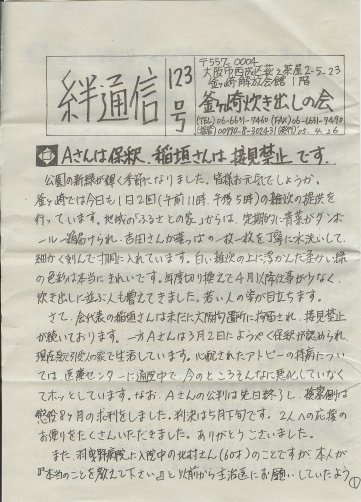 絆通信
123号
〒557-0004
大阪市西成区萩之茶屋2-5-23
釜ヶ崎解放会館1階
釜ヶ崎炊き出しの会
(TEL) 06-6631-7460 (FAX) 06-6631-7490
(振替) 00940-8-302431 (発行) 05.4.26
Aさんは保釈、稲垣さんは接見禁止です。
公園の新緑が輝く季節になりました。皆様お元気でしょうか。
釜ヶ崎では今日も1日2回(午前11時、午後5時)の雑炊の提供を
行っています。地域の「ふるさとの家」からは、定期的に青菜がダンボ
ール一箱届けられ、吉田さんが葉っぱの一枚一枚を丁寧に水洗いして
細かく刻んで寸胴に入れています。白い雑炊の上に浮かんだ青かい緑
の色彩は本当にきれいです。年度切り換えで4月以降仕事が少なく、
炊き出しに並ぶ人も増えてきました。若い人の姿が目立ちます。
さて、会代表の稲垣さんは未だに大阪拘置所に拘留され、接見禁止
が続いております。一方Aさんは3月2日にようやく保釈が認められ
現在受け入れの家で生活しています。心配されたアトピーの持病につい
ては医療センターに通院中で、今のところそんなに悪化していなく
てホッとしています。なお、Aさんの公判は先日終了し、検察側は
懲役8ヶ月の求刑をしました。判決は5月下旬です。2人への応援の
お便りをたくさんいただきました。ありがとうございました。
また、羽曳野病院に入院中の北村さん(60才)のことですが、本人が
『本当のことを教えて下さい』と以前から主治医にお願いしていたよう
①